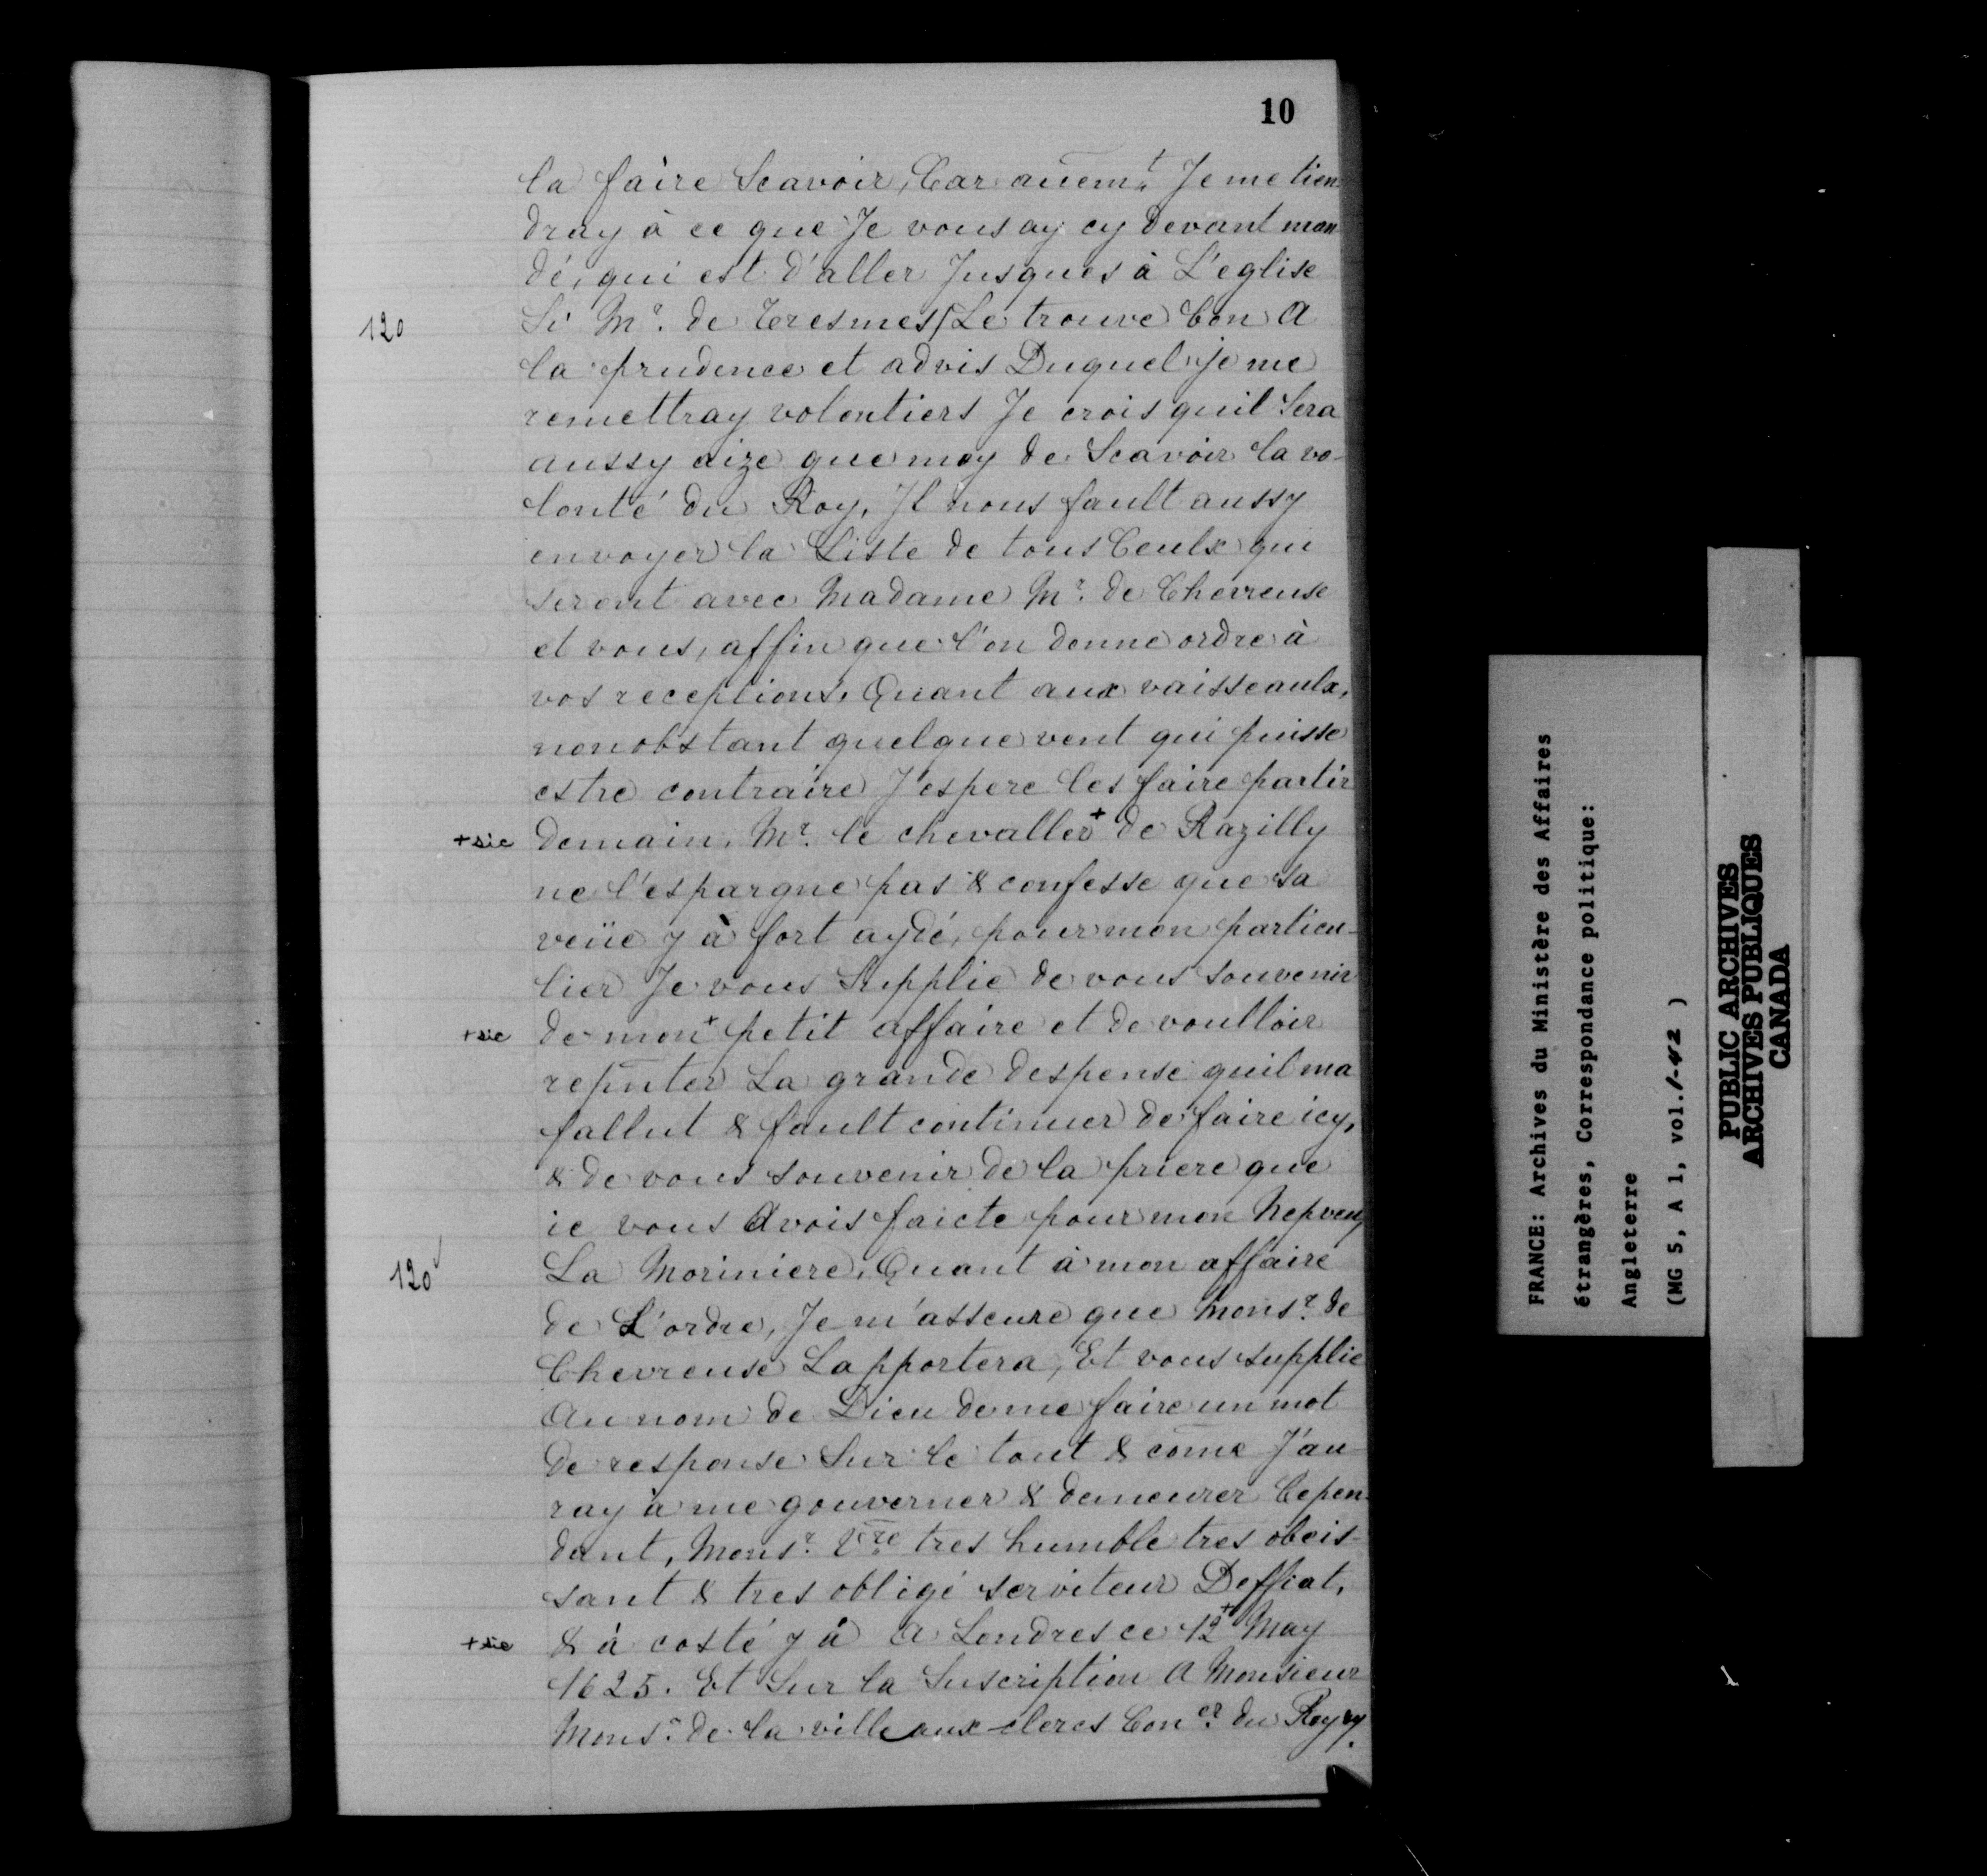 10
la faire Scavoir, Car auem.t Je me tien-
dray à ce que Je vous ay cy devant man
dé, qui est d'aller Jusques à L'eglise
120 Si Mr. de Tresmes Le trouve bon A
la prudence et advis Duquel je me
remettray volontiers Je crois quil Sera
aussy aize que moy de Scavoir la vo-
lonté du Roy, Il nous fault aussy
envoyer la Liste de tous Ceulx qui
seront avec Madame Mr. de Chevreuse
et vous, affin que l'on donne ordre à
vos receptions, Quant aux vaisseaulx,
nonobstant quelque vent qui puisse
estre contraire J'espere les faire partir
+sic demain, Mr. le chevaller+ de Razilly
ne l'espargne pas & confesse que sa
veüe y à fort aydé, pour mon particu-
lier Je vous Supplie de vous souvenir
+sic de mon+ petit affaire et de voulloir
reputer La grande despense quil ma
fallut & fault continuer de faire icy,
& de vous souvenir de la priere que
ie vous Avois faicte pour mon Nepveu
120v La Moriniere, Quant à mon affaire
de L'ordre, Je m'asseure que Monsr. de
Chevreuse Lapportera, Et vous supplie
Au nom de Dieu de me faire un mot
de response Sur le tout & cōme J'au-
ray à me gouverner & demeurer Cepen-
dant, Monsr. Vre tres humble tres obeis-
sant & tres obligé serviteur Deffiat,
+sic & à costé y à A Londres ce 12+ May
1625. Et Sur la Suscription A Monsieur
Monsr. de la ville aux clercs Con.er du Roy
FRANCE: Archives du Ministère des Affaires
étrangères, Correspondance politique:
Angleterre
(MG 5, A 1, vol. 1-42 )
PUBLIC ARCHIVES
ARCHIVES PUBLIQUES
CANADA